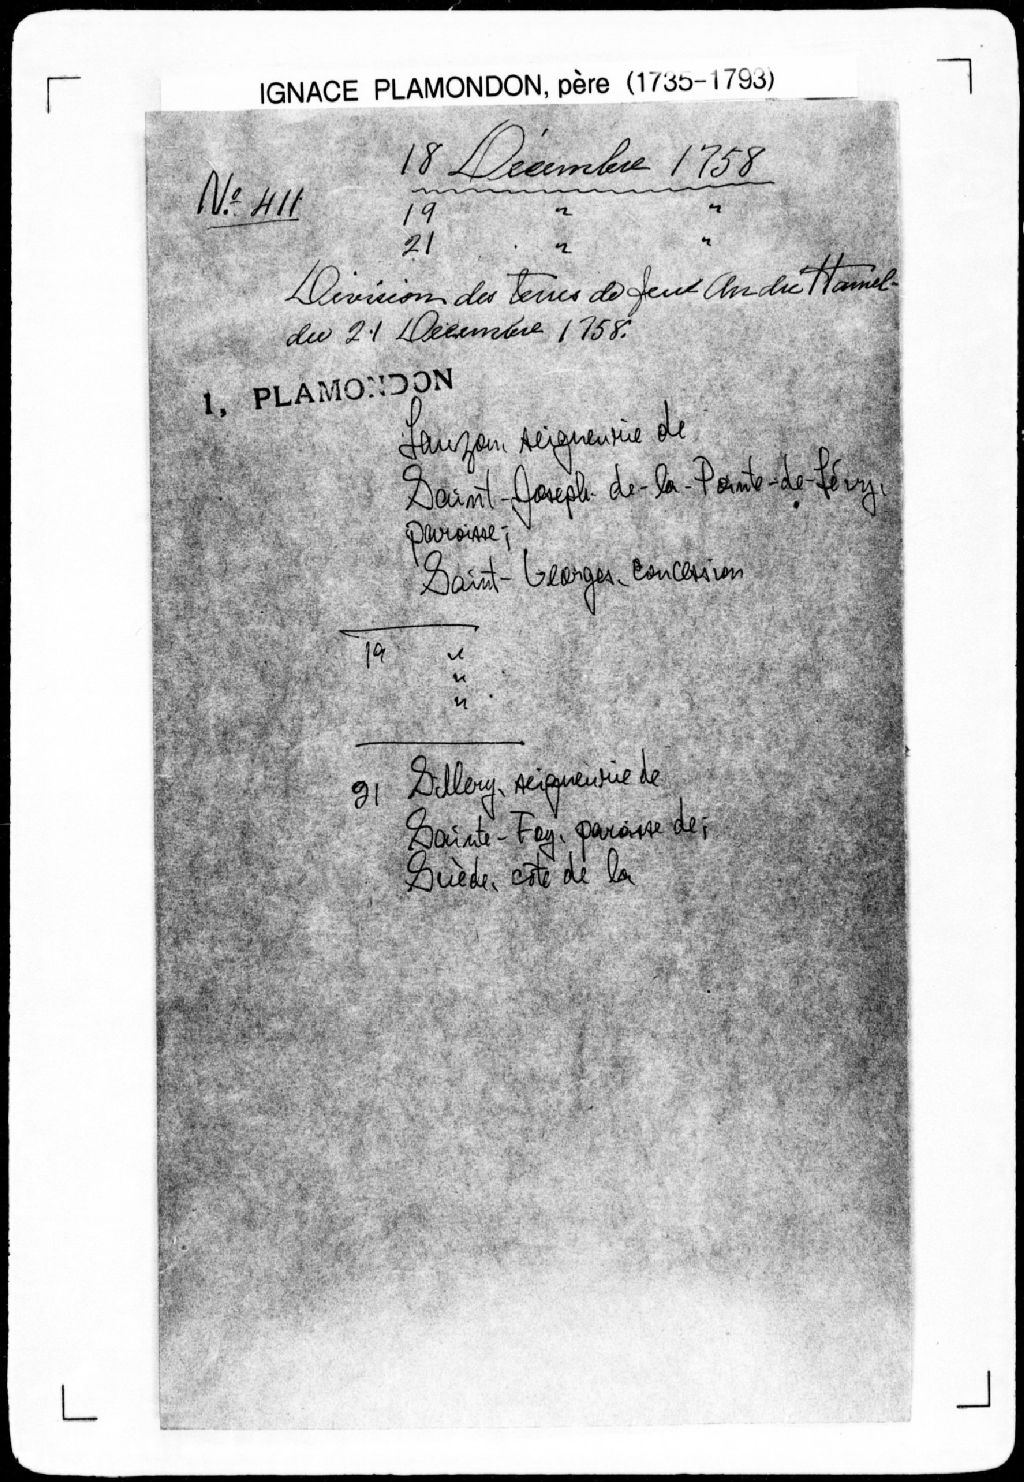 IGNACE PLAMONDON, père (1735-1793)
18 Décembre 1758
No. 411
19 " "
21 " "
Division des terres de feut André Hamel
du 21 Décembre 1758.
1, PLAMONDON
Lauzon, seigneurie de
Saint-Joseph-de-la-Pointe-de-Lévy,
paroisse;
Saint-Georges, concession
19 "
"
"
21 Sillery, seigneurie de
Sainte-Foy, paroisse de;
Suède, côte de la